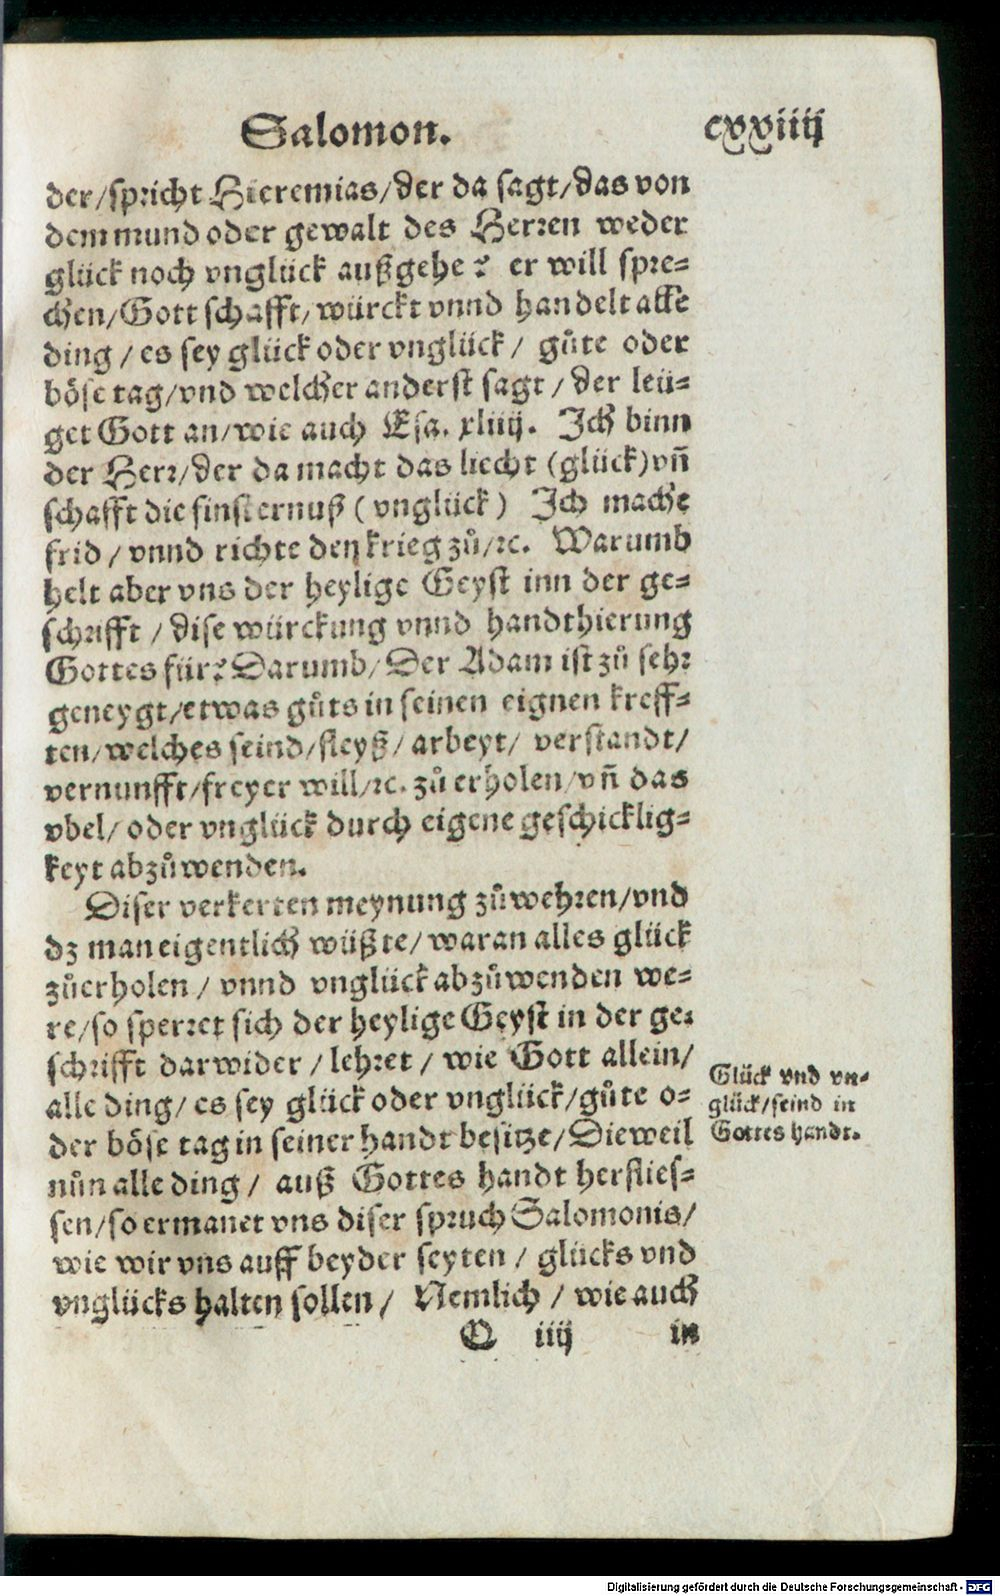 Salomon. cxxiiij
der/spricht Hieremias/der da sagt/das von
dem mund oder gewalt des Herren weder
glück noch vnglück außgehe? er will spre-
chen/Gott schafft/würckt vnnd handelt alle
ding/es sey glück oder vnglück/ gůte oder
böse tag/vnd welcher anderst sagt/der leü-
get Gott an/wie auch Esa. xliiij. Ich binn
der Herr/der da macht das liecht (glück)vñ
schafft die finsternuß (vnglück) Ich mache
frid/vnnd richte den krieg zů/ꝛc. Warumb
helt aber vns der heylige Geyst inn der ge-
schrifft/dise würckung vnnd handthierung
Gottes für? Darumb/Der Adam ist zů sehr
geneygt/etwas gůts in seinen eignen kreff-
ten/welches seind/fleyß/arbeyt/ verstandt/
vernunfft/freyer will/ꝛc. zů erholen/vñ das
vbel/oder vnglück durch eigene geschicklig-
keyt abzůwenden.
Diser verkerten meynung zůwehren/vnd
dz man eigentlich wüßte/waran alles glück
zůerholen/vnnd vnglück abzůwenden we-
re/so sperret sich der heylige Geyst in der ge-
schrifft darwider/lehret/wie Gott allein/
alle ding/es sey glück oder vnglück/gůte o-
der böse tag in seiner handt besitze/Dieweil
nůn alle ding/ auß Gottes handt herflies-
sen/so ermanet vns diser spruch Salomonis/
wie wir vns auff beyder seyten/glücks vnd
vnglücks halten sollen/ Nemlich/wie auch
Q iiij in
Glück vnd vn-
glück/seind in
Gottes handt.
Digitalisierung gefördert durch die Deutsche Forschungsgemeinschaft - DFG